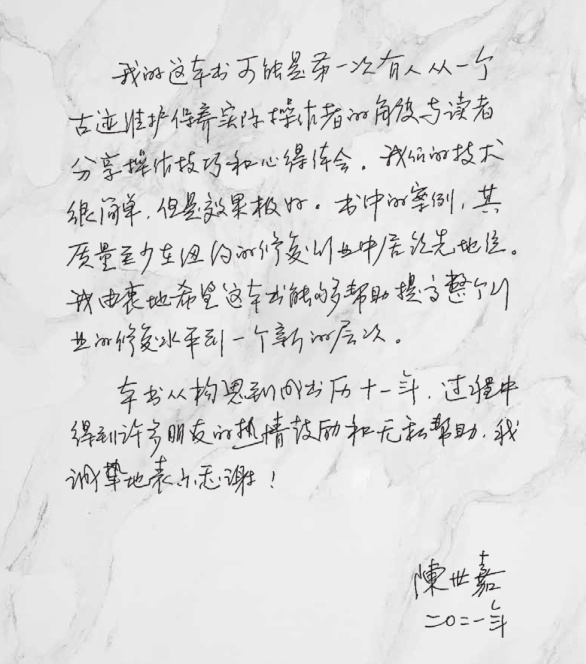 我的这本书可能是第一次有人从一个
古迹维护保养实际操作者的角度与读者
分享操作技巧和心得体会。我们的技术
很简单，但是效果极好。书中的案例，其
质量至少在纽约的修复行业中居领先地位。
我由衷地希望这本书能够帮助提高整个行
业的修复水平到一个新的层次。
本书从构思到成书历十一年，过程中
得到许多朋友的热情鼓励和无私帮助，我
诚挚地表示感谢！
陳世嘉
二〇二一年